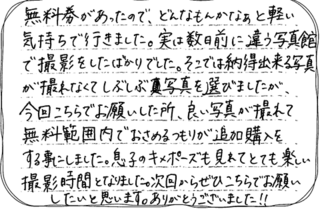 無料券があったので、どんなもんかなぁと軽い
気持ちで行きました。実は数日前に違う写真館
で撮影をしたばかりでした。そこでは納得出来る写真
が撮れなくてしぶしぶ写真を選びましたが、
今回こちらでお願いした所、良い写真が撮れて
無料範囲内でおさめるつもりが追加購入を
する事にしました。息子のキメポーズも見れてとても楽しい
撮影時間となりました。次回からぜひこちらでお願い
したいと思います。ありがとうございました!!